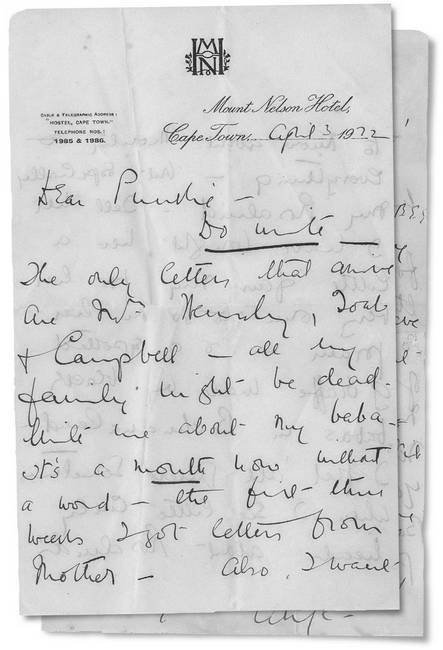 MHN
CABLE & TELEGRAPHIC ADDRESS:
"HOSTEL, CAPE TOWN."
TELEPHONE NOS.:
1985 & 1986.
Mount Nelson Hotel,
Cape Town, April 3 1922
Dear Punkie –
Do write –
The only letters that arrive
are Mrs Hemsley,
& Campbell – all my
family might be dead.
Write me about my baba –
it's a month now without
a word – the first three
weeks I got letters from
Mother – Also, I want